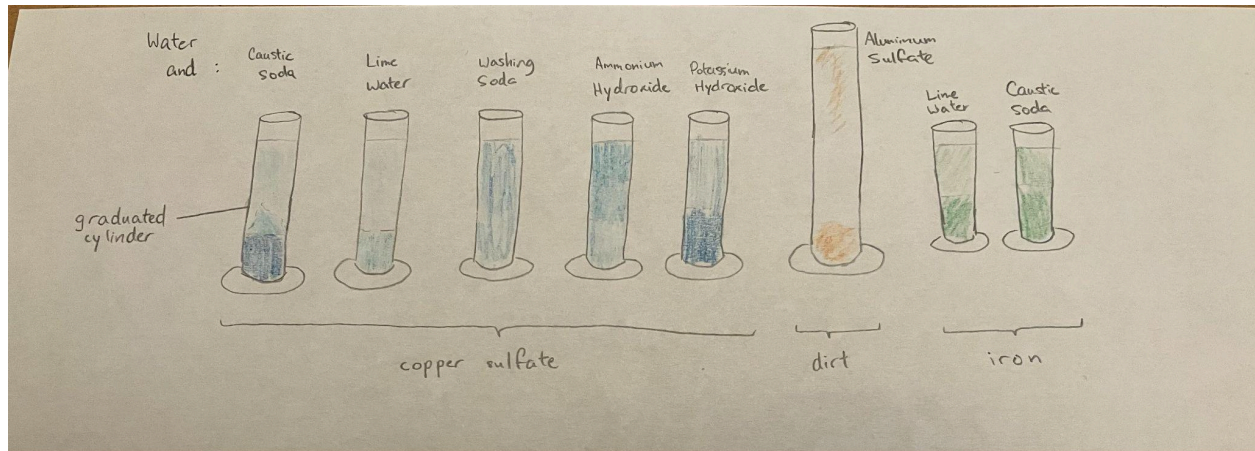 Water
and :
Caustic
soda
Lime
Water
Washing
Soda
Ammonium
Hydroxide
Potassium
Hydroxide
Aluminum
Sulfate
Lime
Water
Caustic
Soda
graduated
cylinder
copper sulfate
dirt
iron